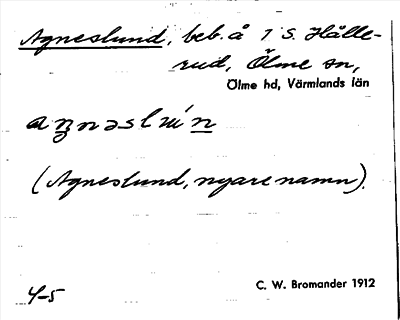 Agneslund, beb. å 1 S. Hälle-
rud, Ölme sn,
Ölme hd, Värmlands län
(Agneslund, nyare namn).
4-5
C. W. Bromander 1912